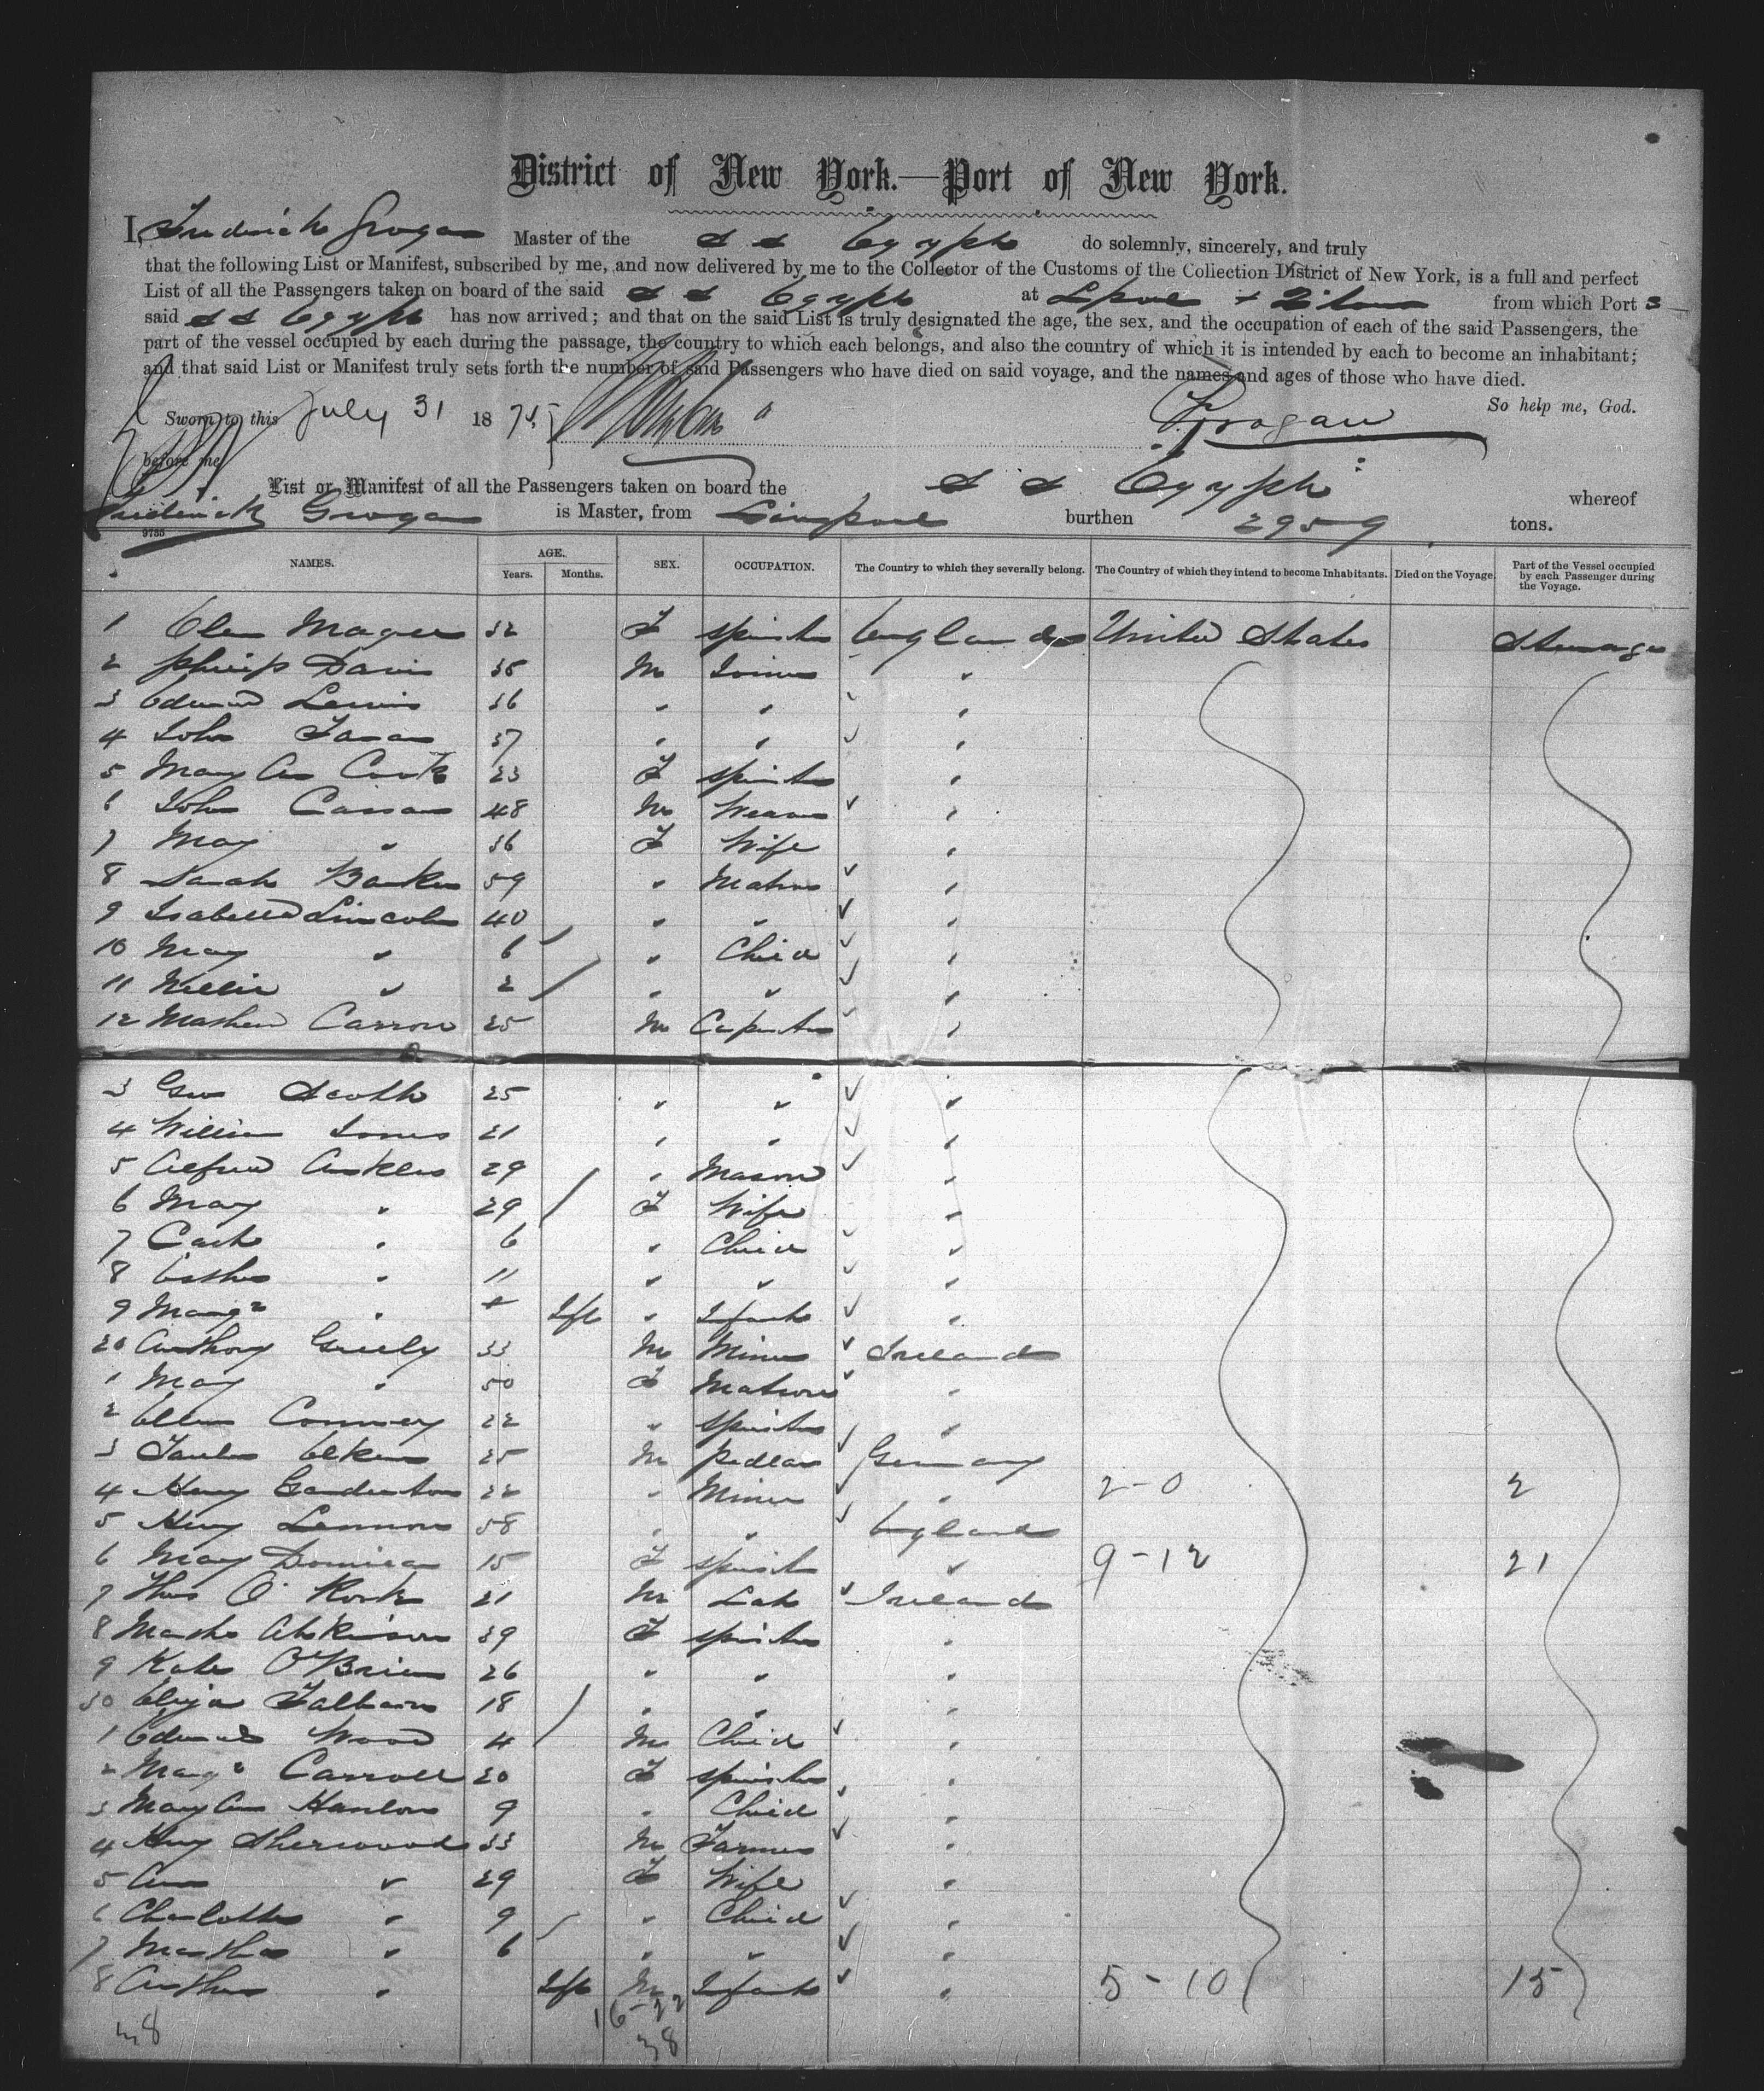 District of New York.—Port of New York.
I, Frederick Grogan Master of the S S Egypt do solemnly, sincerely, and truly
that the following List or Manifest, subscribed by me, and now delivered by me to the Collector of the Customs of the Collection District of New York, is a full and perfect
List of all the Passengers taken on board of the said S S Egypt at Lpool + from which Port s
said S S Egypt has now arrived; and that on the said List is truly designated the age, the sex, and the occupation of each of the said Passengers, the
part of the vessel occupied by each during the passage, the country to which each belongs, and also the country of which it is intended by each to become an inhabitant;
and that said List or Manifest truly sets forth the number of said Passengers who have died on said voyage, and the names and ages of those who have died.
So help me, God.
Sworn to this July 31 1875 F Grogan
before me
List or Manifest of all the Passengers taken on board the S S Egypt whereof
Frederick Grogan is Master, from Liverpool burthen 2959 tons.
9735
NAMES. AGE. Years. Months. SEX. OCCUPATION. The Country to which they severally belong. The Country of which they intend to become Inhabitants. Died on the Voyage. Part of the Vessel occupied by each Passenger during the Voyage.
1 Ellen Magee 32 F spinster England United States Steerage
2 Philip Davis 38 M Joiner "
3 Edward Lewis 36 " " "
4 John 37 " " "
5 Mary Ann 23 F spinster "
6 John 48 M Weaver "
7 Mary " 36 F Wife "
8 Sarah Barker 59 " Matron "
9 Isabella Lincoln 40 " " "
10 Mary " 6 " Child "
11 Nellie " 2 " " "
12 Mathew Carrow 25 M Carpenter "
3 Geo Scott 25 " " "
4 William Jones 21 " " "
5 Alfred 29 " Mason "
6 Mary " 29 F Wife "
7 " 6 " Child "
8 Esther " 11 " " "
9 Margt " Inft " Infant "
20 Anthony Greely 33 M Miner Ireland
1 Mary " 50 F Matron "
2 Ellen 22 " spinster "
3 25 M Pedlar Germany
4 22 " Miner " 2-0 2
5 Henry Lennon 58 " " England
6 Mary 15 F spinst " 9-12 21
7 Thos O' Rork 21 M Lab Ireland
8 Martha Atkinson 39 F spinster "
9 Kate O'Brien 26 " " "
30 Eliza 18 " " "
1 Edward Wood 4 M Child "
2 Margt Carroll 20 F spinster "
3 Mary Ann Hanlon 9 " Child "
4 Henry Sherwood 33 M Farmer "
5 Ann " 29 F Wife "
6 Charlotte " 9 " Child "
7 Martha " 6 " " "
8 Arthur " Inft M Infant " 5-10 15
38 16-22
38